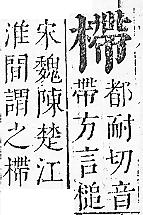 㯂
都耐切音
帶方言槌
宋魏陳楚江
淮間謂之㯂